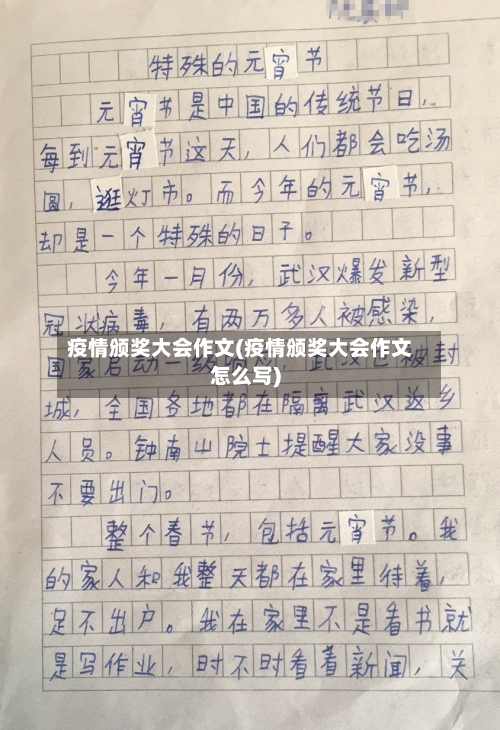 特殊的元宵节
元宵节是中国的传统节日,
每到元宵节这天,人们都会吃汤
圆,逛灯市。而今年的元宵节,
却是一个特殊的日子。
今年一月份,武汉爆发新型
冠状病毒,有两万多人被感染,
疫情颁奖大会作文(疫情颁奖大会作文
怎么写)
国家启动一级 武汉 被封
城,全国各地都在隔离武汉返乡
人员。钟南山院士提醒大家没事
不要出门。
整个春节,包括元宵节。我
的家人和我整天都在家里待着,
足不出户。我在家里不是看书就
是写作业,时不时看看新闻,关